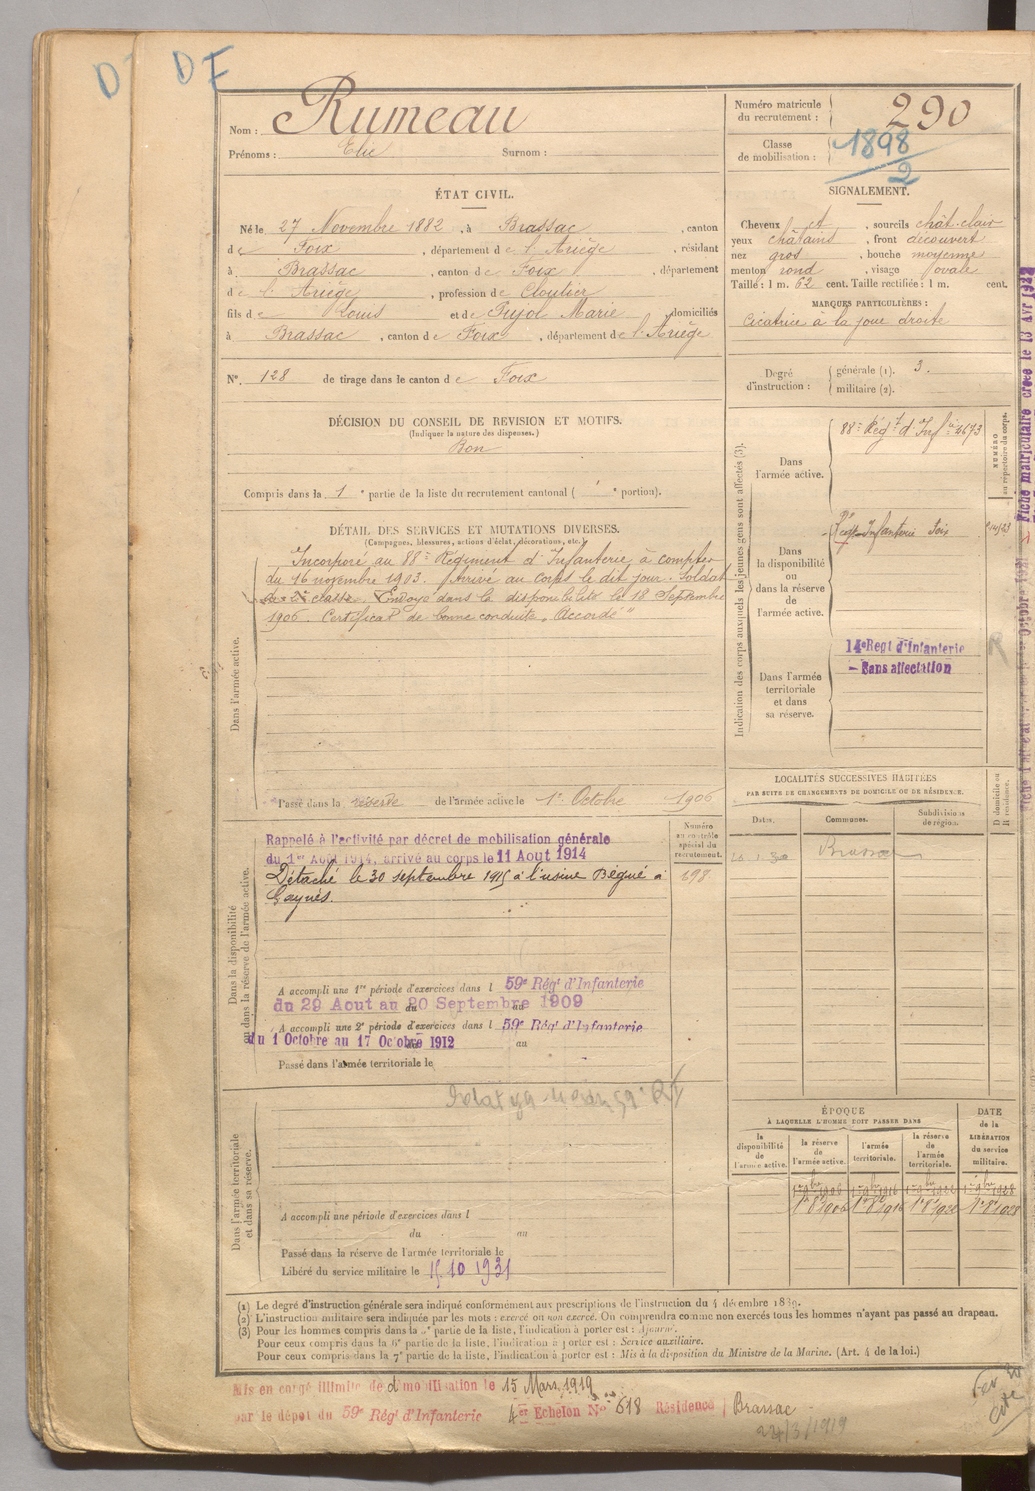 DF
Nom : Rumeau
Prénoms : Elie Surnom :
Numéro matricule du recrutement : 290
Classe de mobilisation : 1898/2
ÉTAT CIVIL.
Né le 27 Novembre 1882, à Brassac, canton
de Foix, département de l'Ariège, résidant
à Brassac, canton de Foix, département
de l'Ariège, profession de Cloutier
fils de Louis et de Pujol Marie domiciliés
à Brassac, canton de Foix, département de l'Ariège
N° 128 de tirage dans le canton de Foix
SIGNALEMENT.
Cheveux et, sourcils chât. clair
yeux châtains, front découvert
nez gros, bouche moyenne
menton rond, visage ovale
Taille : 1 m. 62 cent. Taille rectifiée : 1 m. cent.
MARQUES PARTICULIÈRES :
Cicatrice à la joue droite
Degré d'instruction : générale (1). 3.
militaire (2).
DÉCISION DU CONSEIL DE REVISION ET MOTIFS.
(Indiquer la nature des dispenses.)
Bon
Compris dans la 1e partie de la liste du recrutement cantonal ( e portion).
DÉTAIL DES SERVICES ET MUTATIONS DIVERSES.
(Campagnes, blessures, actions d'éclat, décorations, etc.)
Dans l'armée active.
Incorporé au 88e Régiment d'Infanterie à compter
du 16 novembre 1903. Arrivé au corps le dit jour. Soldat
de 2e classe. Envoyé dans la disponibilité le 18 Septembre
1906. Certificat de bonne conduite "Accordé"
Passé dans la réserve de l'armée active le 1er Octobre 1906
Indication des corps auxquels les jeunes gens sont affectés (3).
NUMÉRO au répertoire du corps.
Dans l'armée active.
88e Régt d'Infie 4673
Dans la disponibilité ou dans la réserve de l'armée active.
Infanterie Foix
Dans l'armée territoriale et dans sa réserve.
14e Regt d'Infanterie
- Sans affectation
R
Fiche matriculaire créée le 13 Avr 1922
LOCALITÉS SUCCESSIVES HABITÉES
PAR SUITE DE CHANGEMENTS DE DOMICILE OU DE RÉSIDENCE.
Dates. Communes. Subdivisions de région. D. domicile ou R. résidence.
Brassac
Dans la disponibilité ou dans la réserve de l'armée active.
Numéro au contrôle spécial du recrutement.
698
Rappelé à l'activité par décret de mobilisation générale
du 1er Aout 1914, arrivé au corps le 11 Aout 1914
Détaché le 30 septembre 1915 à l'usine Bégué à
A accompli une 1re période d'exercices dans l 59e Rég' d'Infanterie
du 29 Aout au 20 Septembre 1909
A accompli une 2e période d'exercices dans l 59e Rég' d'Infanterie
du 1 Octobre au 17 Octobre 1912 au
Passé dans l'armée territoriale le
Dans l'armée territoriale et dans sa réserve.
A accompli une période d'exercices dans l
du au
Passé dans la réserve de l'armée territoriale le
Libéré du service militaire le 15 10 1931
ÉPOQUE
À LAQUELLE L'HOMME DOIT PASSER DANS
la disponibilité de l'armée active.
la réserve de l'armée active.
l'armée territoriale.
la réserve de l'armée territoriale.
DATE de la LIBÉRATION du service militaire.
1er 8bre 1906 1er 8bre 1916 1er 8bre 1922 1er 8bre 1928
(1) Le degré d'instruction générale sera indiqué conformément aux prescriptions de l'instruction du 4 décembre 1889.
(2) L'instruction militaire sera indiquée par les mots : exercé ou non exercé. On comprendra comme non exercés tous les hommes n'ayant pas passé au drapeau.
(3) Pour les hommes compris dans la 5e partie de la liste, l'indication à porter est : Ajourné.
Pour ceux compris dans la 6e partie de la liste, l'indication à porter est : Service auxiliaire.
Pour ceux compris dans la 7e partie de la liste, l'indication à porter est : Mis à la disposition du Ministre de la Marine. (Art. 4 de la loi.)
Mis en congé illimité de démobilisation le 15 Mars 1919
par le dépôt du 59e Rég' d'Infanterie 4er Echelon No 618 Résidence Brassac
24/3/1919